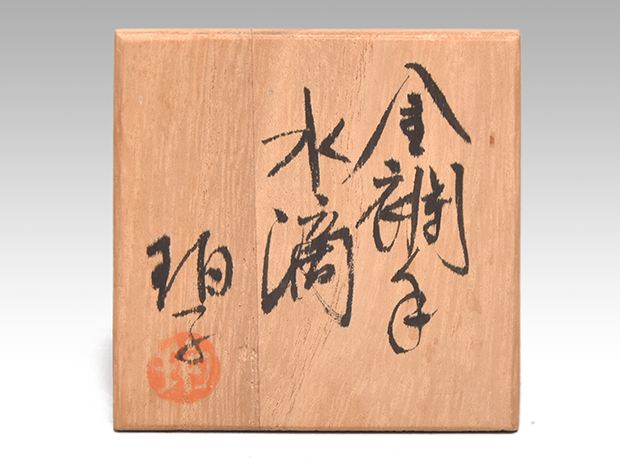 金襴手
水滴
珀子